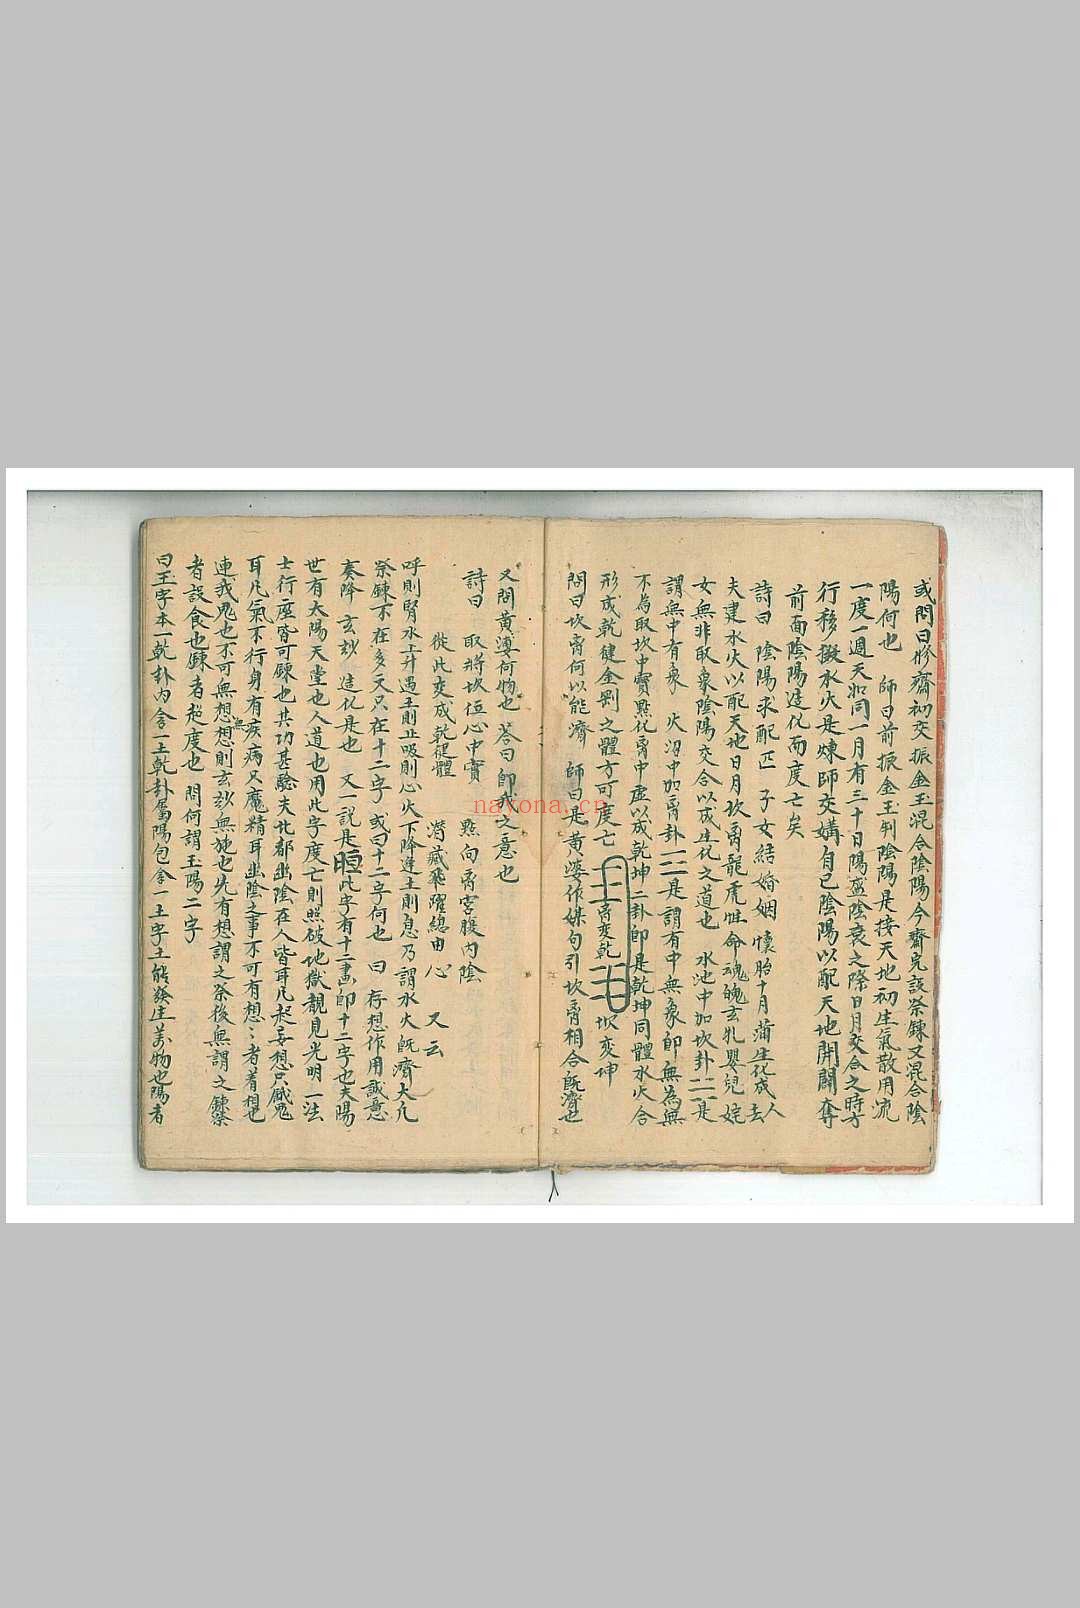 或問曰修齋初交振金玉混合陰陽今齋完設祭鍊又混合陰
陽何也 師曰前振金玉判陰陽是接天地初生氣散用流
一度一週天如同一月有三十日陽盈陰衰之際日月交合之時方
行移擬水火是煉師交媾自己陰陽以配天地開闢奪
前面陰陽造化而度亡矣
詩曰 陰陽求配匹 子女結婚姻 懷胎十月蒲 生化成人去
夫建水火以配天地日月坎离龍虎性命魂魄玄牝嬰兒姹
女無非取象陰陽交合以成生化之道也 水池中加坎卦是
謂無中有象 火沼中加离卦是謂有中無象即無為無
不為取坎中實點化离中虛以成乾坤二卦即是乾坤同體水火合
形成乾健金剛之體方可度亡 离変乾 坎変坤
問曰坎离何以能濟 師曰是黃婆作媒勾引坎离相合既濟也
又問黃婆何物也 荅曰即我之意也
詩曰 取將坎位心中實 點向离宮腹內陰
從此変成乾健體 潜藏飛躍總由心 又云
呼則腎水上升遇土則止吸則心火下降逢土則息乃謂水火既濟大凡
祭鍊不在多文只在十二字 或曰十二字何也 曰存想作用誠意
奏降 玄玅造化是也 又一說是 此字有十二畫即十二字也夫陽
世有太陽天堂也人道也用此字度亡則照破地獄覩見光明 一法
士行座皆可鍊也其功甚驗夫北都幽陰在人皆耳凡起妄想只厭鬼
耳凡氣不行身有疾病又魔精耳幽陰之事不可有想〻者着想也
連我鬼也不可無想無想則玄玅無施也先有想謂之祭後無謂之鍊祭
者設食也鍊者超度也 問何謂玉陽二字
曰玉字本一乾卦內含一土乾卦屬陽包含一土字土能發生萬物也陽者
nayona.cn